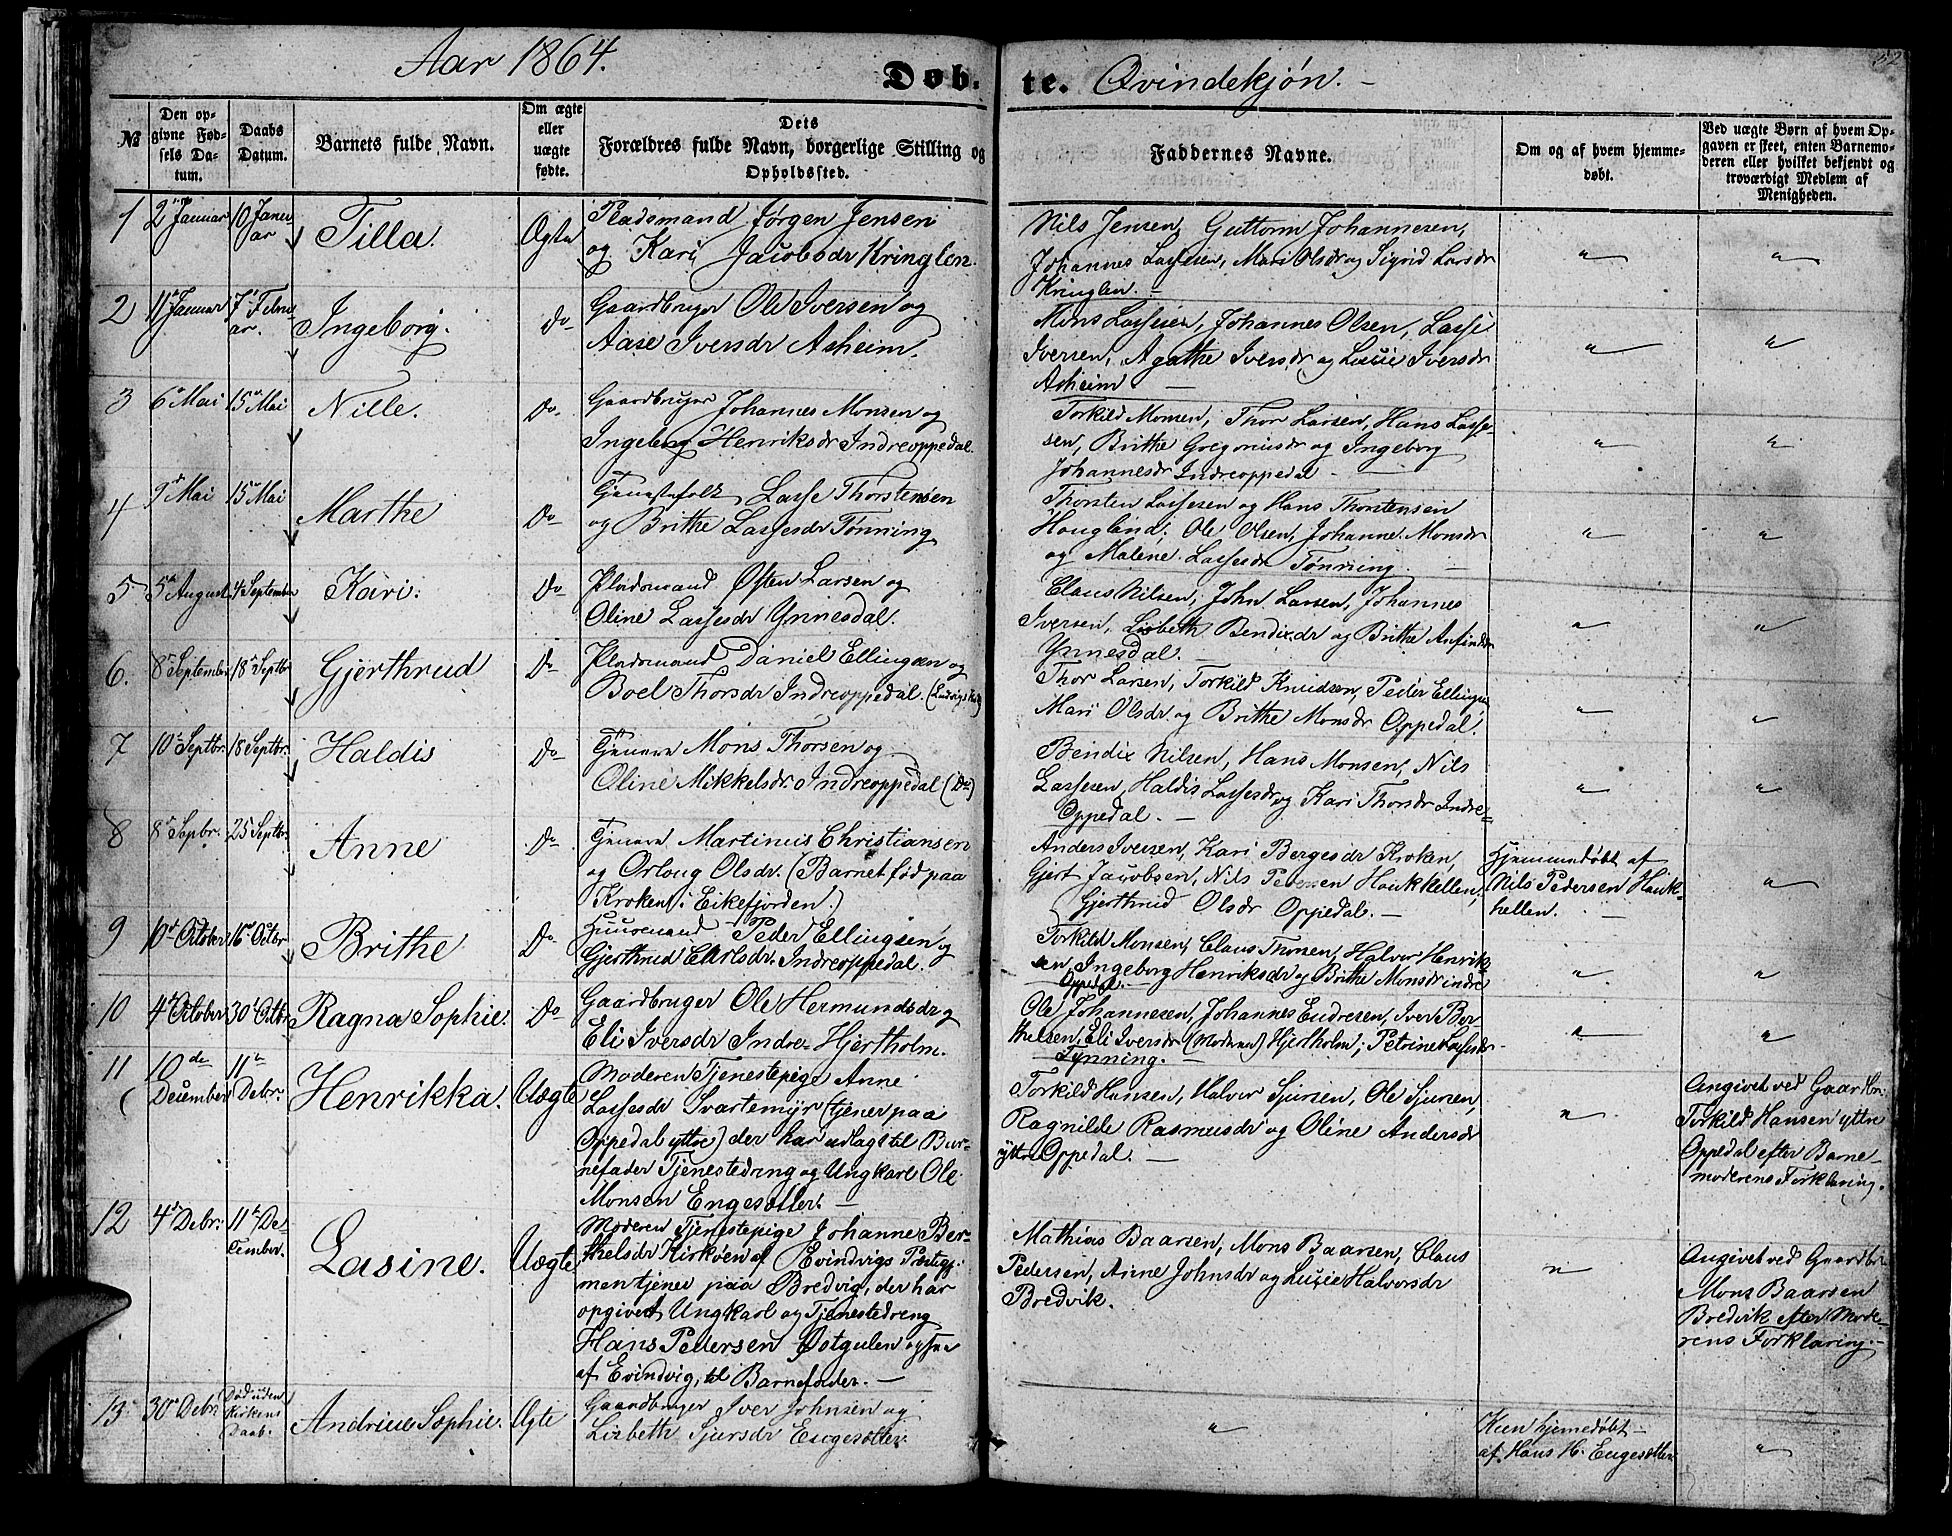 Aar 1864.
Døb-
te. Qvindekjøn. -
52
№
Den op-
givne Fød-
sels Da-
tum.
Daabs
Datum.
Barnets fulde Navn.
Om ægte
eller
uægte
fødte.
Dets
Forældres fulde Navn, borgerlige Stilling og
Opholdssted.
Faddernes Navne.
Om og af hvem hjemme-
døbt.
Ved uægte Børn af hvem Op-
gaven er skeet, enten Barnemo-
deren eller hvilket bekjendt og
troværdigt Medlem af
Menigheden.
1 2 Januar 10 Janu-
ar
Tilla. Ægte
Pladsmand Jørgen Jensen
og Kari Jacobsdr Kringlen.
Nils Jensen, Guttorm Johannesen,
Johannes Lassesen, Mari Olsdr og Sigrid Larsdr
Kringlen. -
2 11 Januar 7 Febru-
ar.
Ingeborg. Do
Gaardbruger Ole Iversen og
Aase Iversdr Asheim.
Mons Lassesen, Johannes Olsen, Lasse
Iversen, Agathe Iversdr og Lusie Iversdr
Asheim -
3 6 Mai 15 Mai Nille. Do.
Gaardbruger Johannes Monsen og
Ingeborg Henriksdr Indreoppedal.
Torkild Monsen, Thor Larsen, Hans Lasse-
sen, Brithe Gregoriusdr og Ingeborg
Johannesdr Indreoppedal -
4 9 Mai 15 Mai Marthe Do
Tjenestefolk Lasse Thorstensen
og Brithe Lassesdr Tønning
Thorsten Lassesen og Hans Thorstensen
Hougland; Ole Olsen, Johanne Monsdr
og Malene Lassesdr Tønning. -
5 5 August 4 September Kari: Do
Pladsmand Østen Larsen og
Oline Lassesdr Ynnesdal.
Claus Nilsen, John Larsen, Johannes
Iversen, Lisbeth Bendixdr og Brithe Anfindsdr
Ynnesdal. -
6. 8 September 18 Septbr Gjerthrud Do
Pladsmand Daniel Ellingsen og
Boel Thorsdr Indreoppedal.
Thor Larsen, Torkild Knudsen, Peder Ellingsen
Mari Olsdr og Brithe Monsdr Oppedal.
7 10 Septbr. 18 Septbr. Haldis Do
Mons Thorsen og
Oline Mikkelsdr. Indreoppedal (Do)
Bendix Nilsen, Hans Monsen, Nils
Lassesen, Haldis Lassesdr og Kari Thorsdr Indre-
Oppedal. -
8 8 Sepbr. 25 Septbr. Anne Do
Martinus Christiansen
og Orloug Olsdr. (Barnet fød paa
Kroken i Eikefjorden.)
Anders Iversen, Kari Bergesdr Kroken,
Gjert Jacobsen, Nils Pedersen Haukhellen,
Gjerthrud Olsdr Oppedal. -
Hjemmedøbt af
Nils Pedersen Hauk-
hellen. -
9 10 October 16 Octbr Brithe Do
Huusmand Peder Ellingsen og
Gjerthrud Carlsdr. Indreoppedal.
Torkild Monsen, Claus Thorsen, Halvor Henrik-
sen, Ingeborg Henriksdr og Brithe Monsdr indre
Oppedal. -
10 4 October 30 Octbr Ragna Sophie. Do
Gaardbruger Ole Hermundsdr og
Eli Iversdr Indre-Hjertholm.
Ole Johannesen, Johannes Endresen, Iver Ber-
thelsen, Eli Iversdr (Moderen) Hjertholm; Petrine Lassesdr
Tynning. -
11 10de
December
11
Debr:
Henrikka. Uægte
Moderen Tjenestepige Anne
Lassesdr Svartemyr (tjener paa
Oppedal yttre) der har udlagt til Bar-
nefader Tjenestedreng og Ungkarl Ole
Monsen Engesætter. -
Torkild Hansen, Halvor Sjursen, Ole Sjursen,
Ragnilde Rasmusdr og Oline Andersdr
yttre Oppedal. -
Angivet ved Gaardbr.
Torkild Hansen yttre
Oppedal efter Barne-
moderens Forklaring.
12 4 Debr: 11 De-
cember.
Lasine. Uægte
Moderen Tjenestepige Johanne Ber-
thelsdr Kirkøen af Evindvigs Præstegj:
men tjener paa Bredvig, der har
opgivet Ungkarl og Tjenestedreng
Hans Pedersen Østgulen
af Evindvig, til Barnefader. -
Mathias Baarsen, Mons Baarsen, Claus
Pedersen, Anne Johnsdr og Lusie Halvorsdr
Bredvik.
Angivet ved Gaardbr
Mons Baarsen
Bredvik efter Mode-
rens Forklaring. -
13 30 Debr: Død uden
Kirkens
Daab.
Andrine Sophie. Ægte
Gaardbruger Iver Johnsen og
Lisbeth Sjursdr Engesætter.
Kun hjemedøbt -
af Hans H. Engesætter